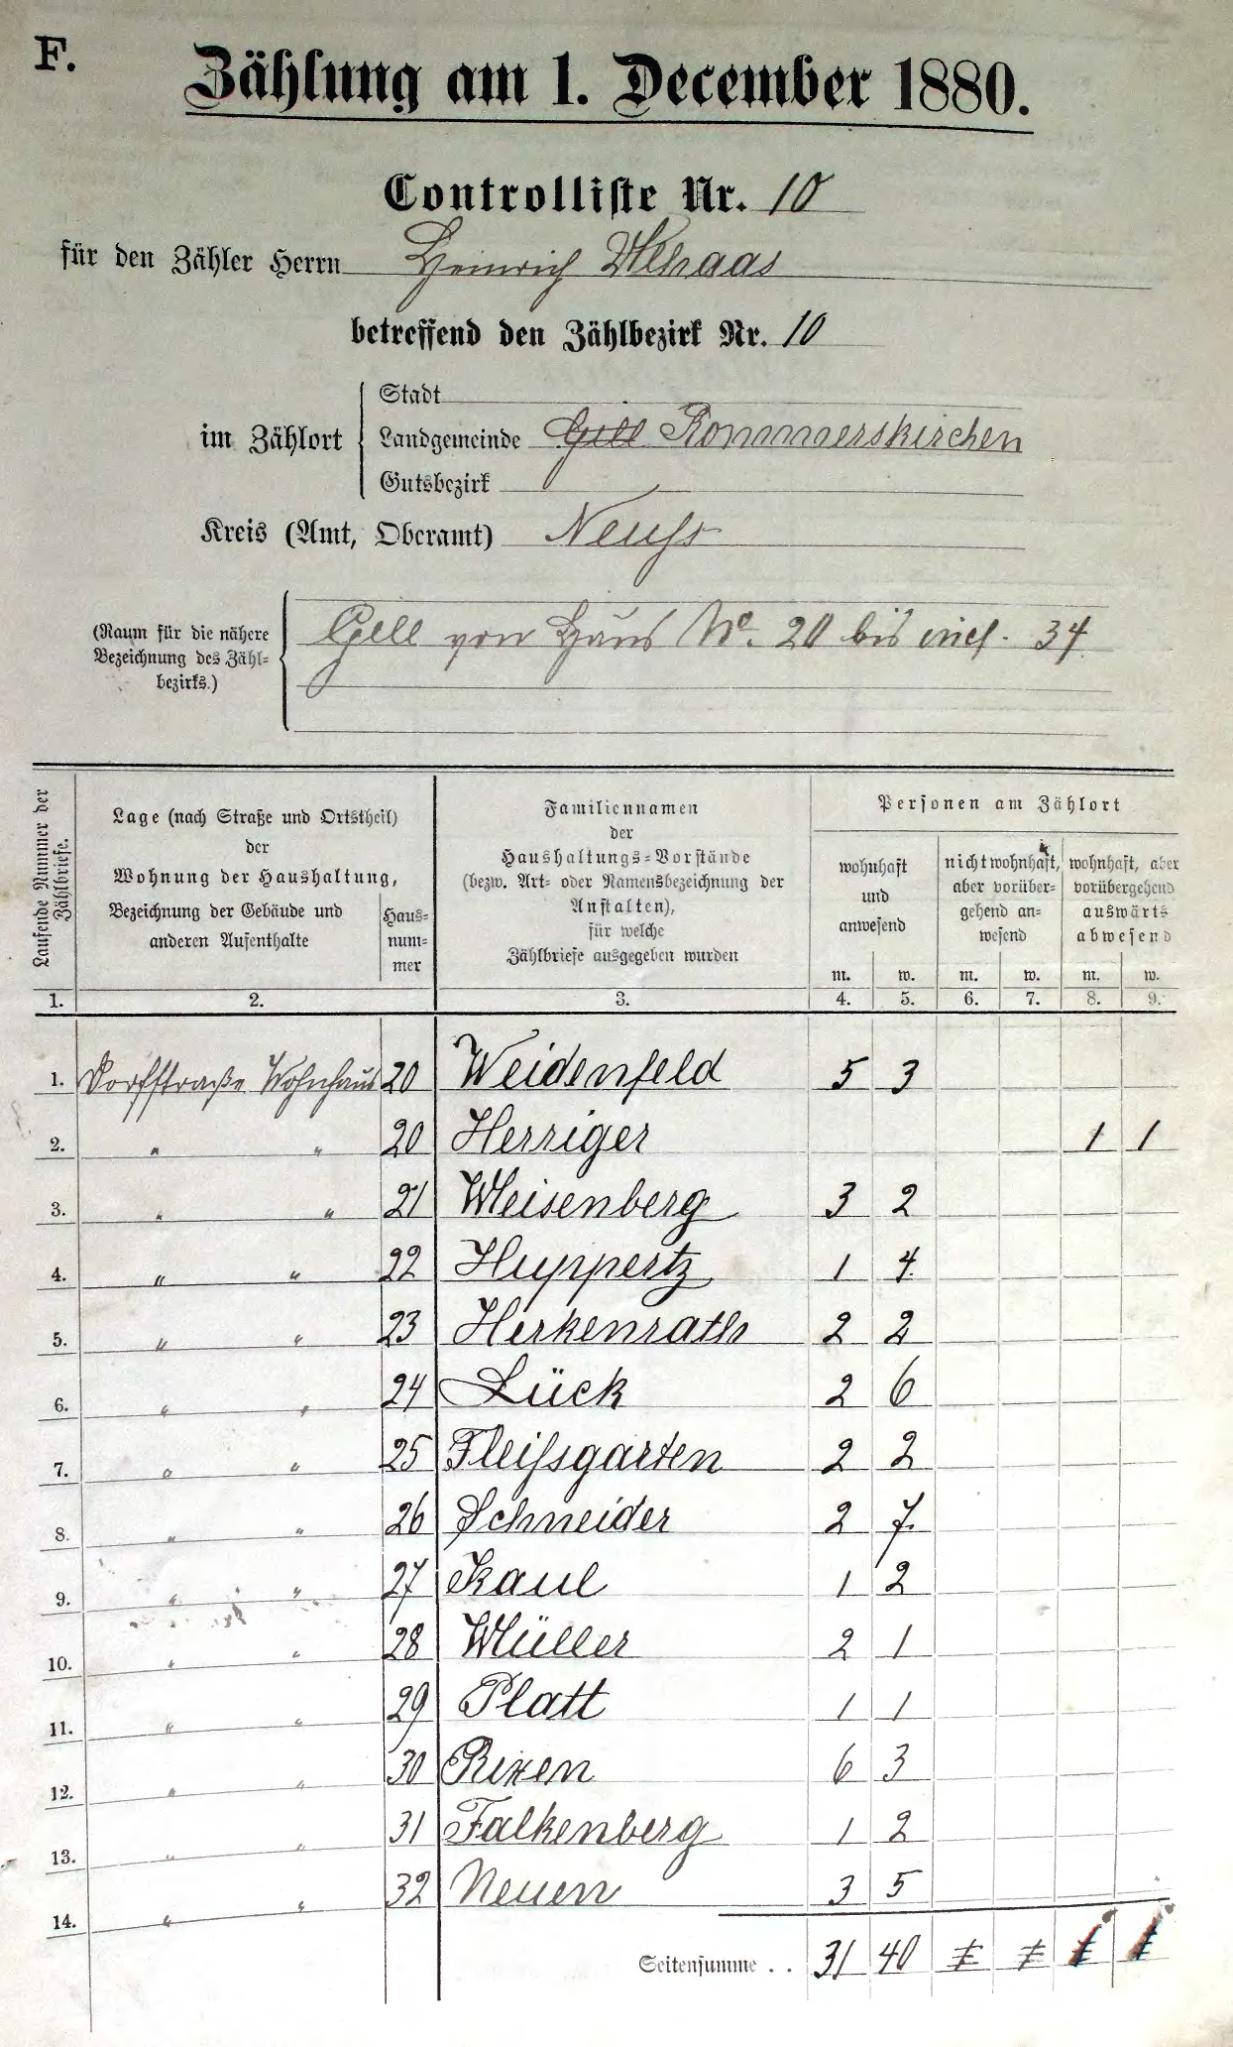 F.
Zählung am 1. December 1880.
Controlliste Nr. 10
für den Zähler Herrn Heinrich Maas
betreffend den Zählbezirk Nr. 10
Stadt
im Zählort Landgemeinde Gill Rommerskirchen
Gutsbezirk
Kreis (Amt, Oberamt) Neuss
(Raum für die nähere Bezeichnung des Zähl-
bezirks.)
Gill von Haus No. 20 bis incl. 34
Laufende Nummer der Zählbriefe.
Lage (nach Straße und Ortstheil)
der
Wohnung der Haushaltung,
Bezeichnung der Gebäude und
anderen Aufenthalte
Haus-
num-
mer
Familiennamen
der
Haushaltungs-Vorstände
(bezw. Art- oder Namensbezeichnung der
Anstalten),
für welche
Zählbriefe ausgegeben wurden
Personen am Zählort
wohnhaft
und
anwesend
nichtwohnhaft,
aber vorüber-
gehend an-
wesend
wohnhaft, aber
vorübergehend
auswärts
abwesend
m. w. m. w. m. w.
1. 2. 3. 4. 5. 6. 7. 8. 9.
1. Dorfstraße Wohnhaus 20 Weidenfeld 5 3
2. " " 20 Herriger 1 1
3. " " 21 Meisenberg 3 2
4. " " 22 Huppertz 1 4
5. " " 23 Herkenrath 2 2
6. " " 24 Lück 2 6
7. " " 25 Fleissgarten 2 2
8. " " 26 Schneider 2 7
9. " " 27 Kaul 1 2
10. " " 28 Müller 2 1
11. " " 29 Platt 1 1
12. " " 30 Rixen 6 3
13. " " 31 Falkenberg 1 2
14. " " 32 Neuen 3 5
Seitensumme . . 31 40